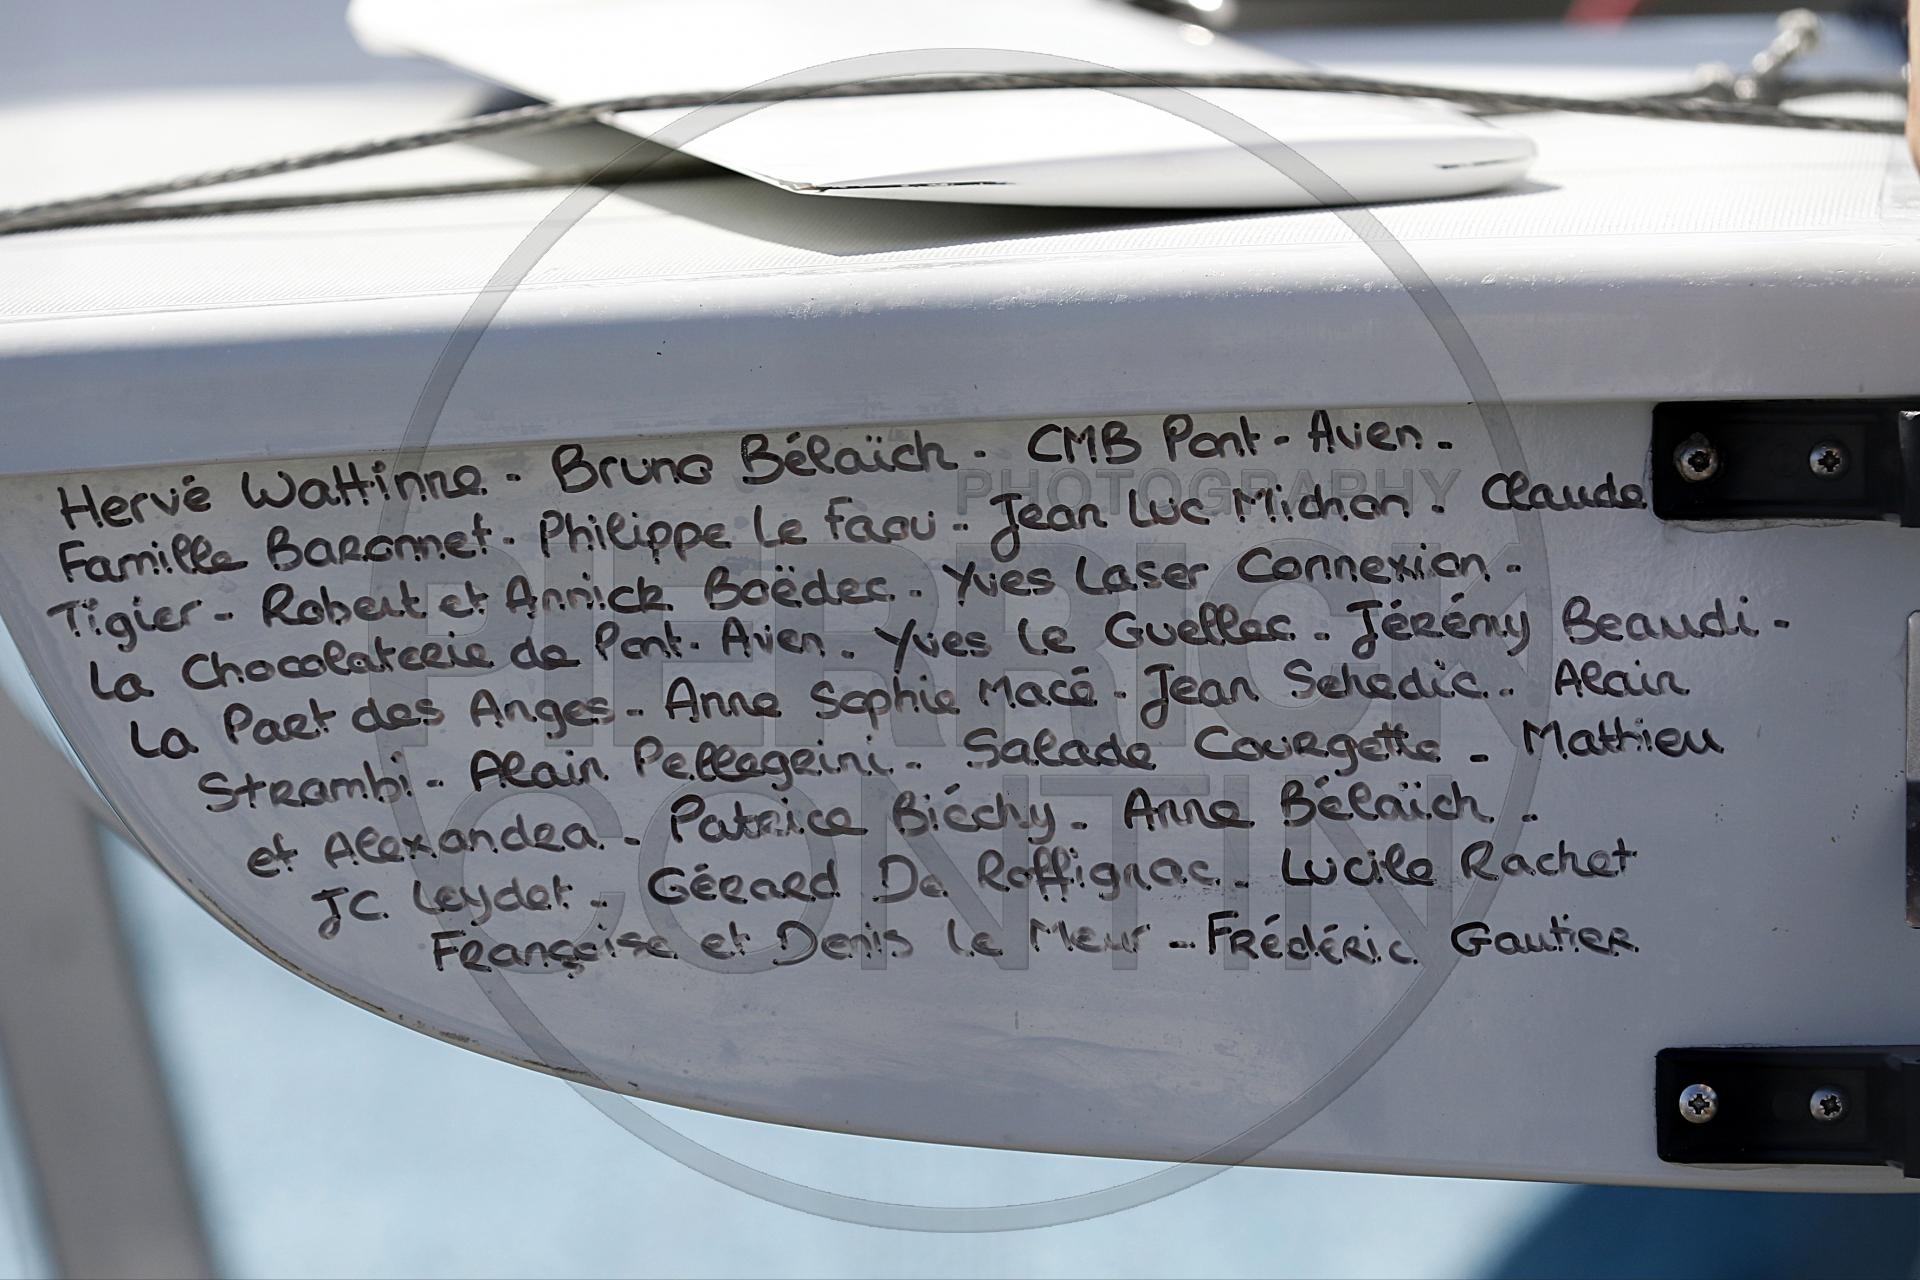 Hervé Wattinne - Bruno Bélaïch - CMB Pont-Aven -
Famille Baronnet - Philippe Le Faou - Jean Luc Michon - Claude
Tigier - Robert et Annick Boëdec - Yves Laser Connexion -
La Chocolaterie de Pont-Aven - Yves Le Guellec - Jérémy Beaudi -
La Part des Anges - Anne Sophie Macé - Jean Sehedic - Alain
Strambi - Alain Pellegrini - Salade Courgette - Mathieu
et Alexandra - Patrice Biéchy - Anne Bélaïch -
JC Leydet - Gérard De Roffignac - Lucile Rachet
Françoise et Denis Le Meur - Frédéric Gautier
PIERRICK
CONTIN
PHOTOGRAPHY